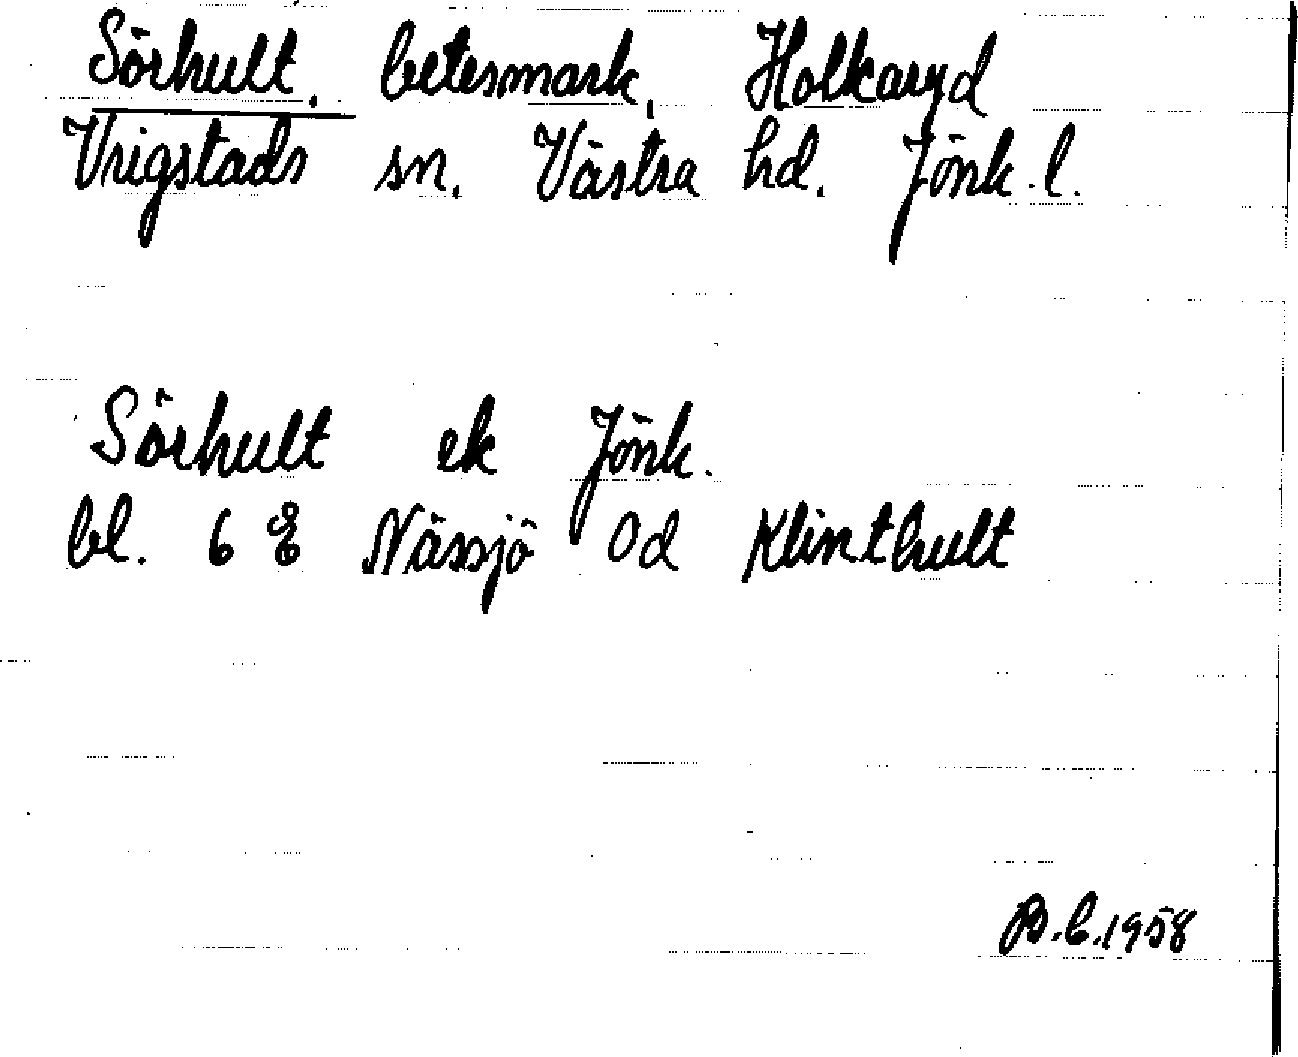 Sörhult. betesmark, Holkaryd
Vrigstads sn. Västra hd. Jönk. l.
Sörhult ek Jönk.
bl. 6 E Nässjö Od Klinthult
B.C.1958